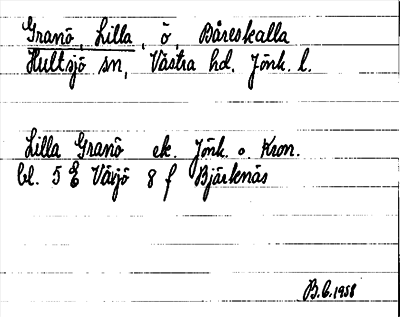 Granö, Lilla, ö, Båreskalla
Hultsjö sn, Västra hd. Jönk. l.
Lilla Granö ek. Jönk. o. Kron.
bl. 5 E Växjö 8 f Bjärknäs
B.C. 1958